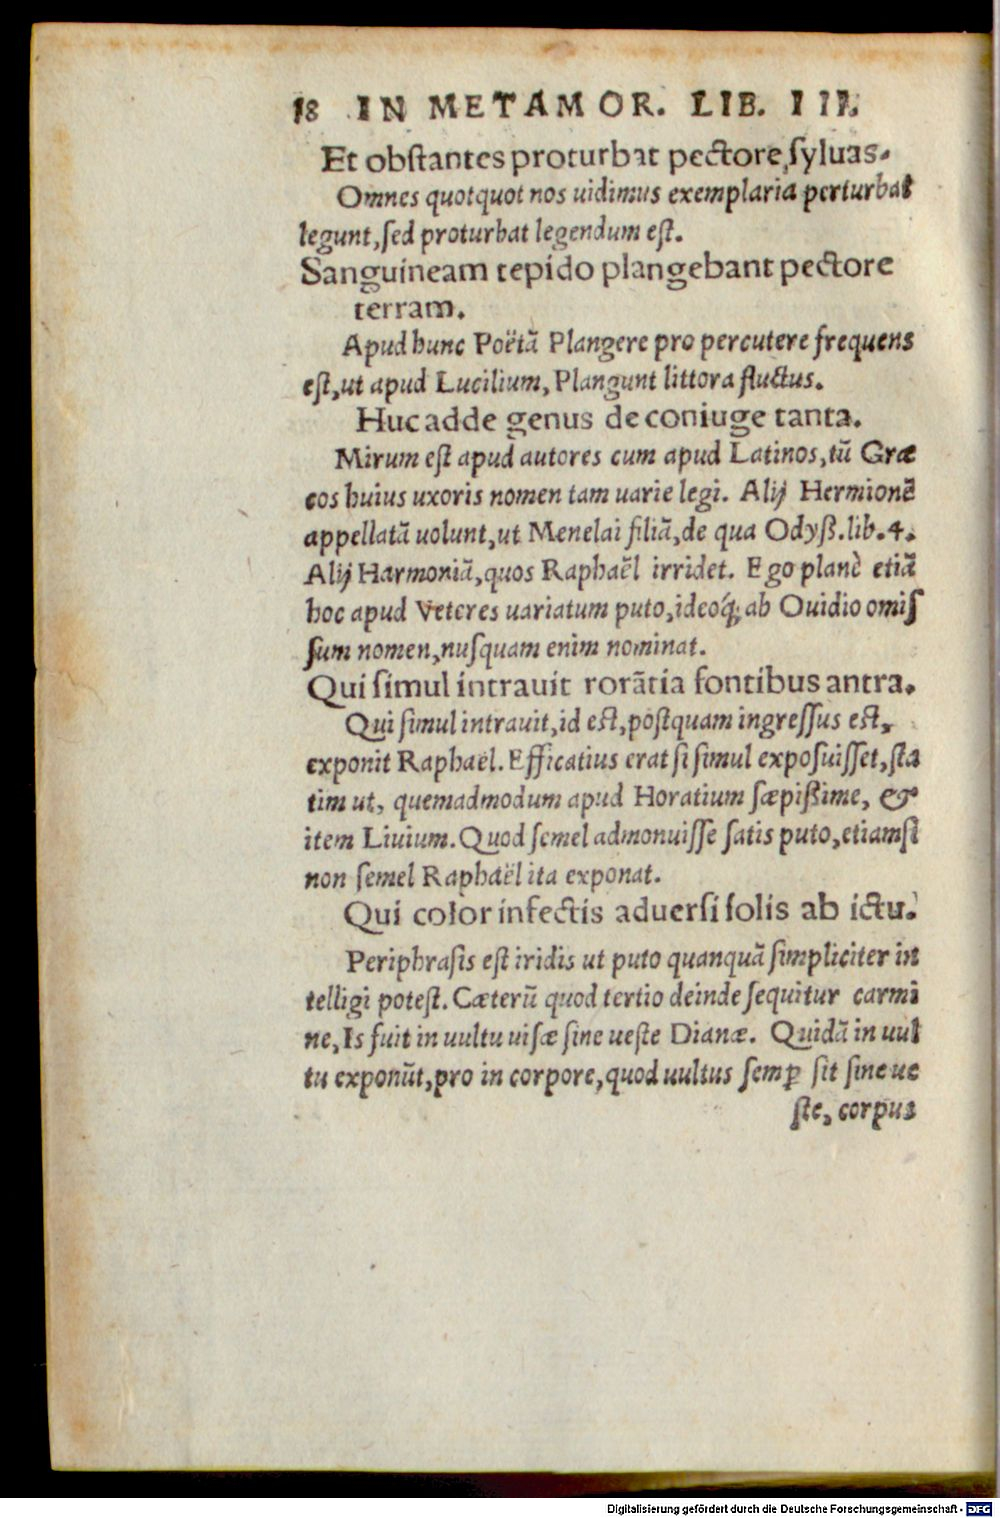 18 IN METAMOR. LIB. III.
Et obstantes proturbat pectore syluas.
Omnes quotquot nos uidimus exemplaria perturbat
legunt, sed proturbat legendum est.
Sanguineam tepido plangebant pectore
terram.
Apud hunc Poëtã Plangere pro percutere frequens
est, ut apud Lucilium, Plangunt littora fluctus.
Huc adde genus de coniuge tanta.
Mirum est apud autores cum apud Latinos, tũ Græ
cos huius uxoris nomen tam uarie legi. Alij Hermionẽ
appellatã uolunt, ut Menelai filiã, de qua Odyß. lib. 4.
Alij Harmoniã, quos Raphaël irridet. Ego planè etiã
hoc apud Veteres uariatum puto, ideoq́; ab Ouidio omis
sum nomen, nusquam enim nominat.
Qui simul intrauit rorãtia fontibus antra.
Qui simul intrauit, id est, postquam ingressus est,
exponit Raphaël. Efficatius erat si simul exposuisset, sta
tim ut, quemadmodum apud Horatium sæpißime, &
item Liuium. Quod semel admonuisse satis puto, etiamsi
non semel Raphaël ita exponat.
Qui color infectis aduersi solis ab ictu.
Periphrasis est iridis ut puto quanquã simpliciter in
telligi potest. Cæterũ quod tertio deinde sequitur carmi
ne, Is fuit in uultu uisæ sine ueste Dianæ. Quidã in uul
tu exponũt, pro in corpore, quod uultus semꝑ sit sine ue
ste, corpus
Digitalisierung gefördert durch die Deutsche Forschungsgemeinschaft - DFG